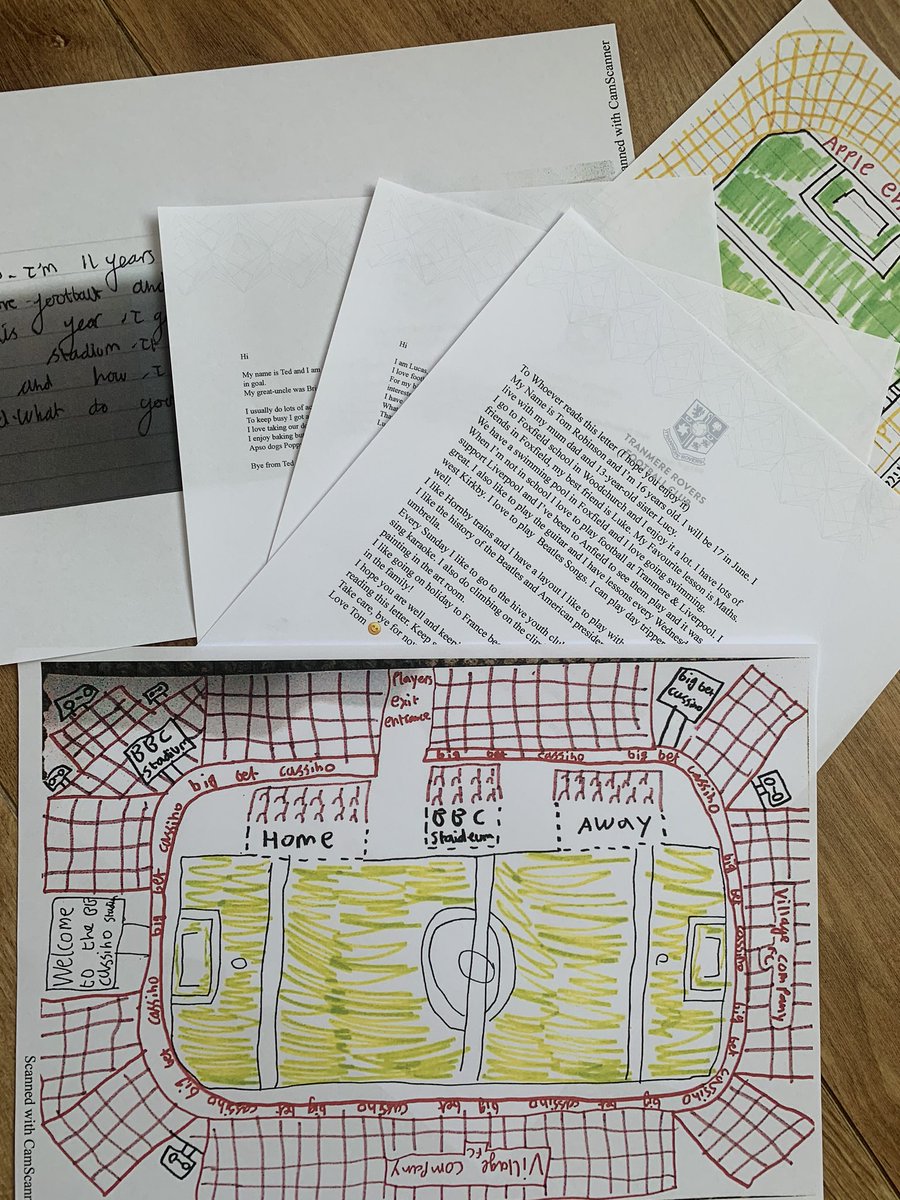 Scanned with CamScanner
I'm 11 years
football and
is year, I
stadium. I
and how, I
What do you
Hi
My name is Ted and I am
in goal.
My great-uncle was Bri
I usually do lots of ac
To keep busy I got a
I love taking our d
I enjoy baking bu
Apso dogs Popp
Bye from Ted
Hi
I am Lucas
I love foot
For my b
interest
I have
What
Tha
Lu
TRANMERE ROVERS
FOOTBALL CLUB
To Whoever reads this letter. (Hope you enjoy it)
My Name is Tom Robinson and I'm 16 years old. I will be 17 in June. I
live with my mum dad and 13-year-old sister Lucy.
I go to Foxfield school in Woodchurch and I enjoy it a lot. I have lots of
friends in Foxfield, my best friend is Luke. My Favourite lesson is Maths.
We have a swimming pool in Foxfield and I love going swimming.
When I'm not in school I love to play football at Tranmere & Liverpool. I
support Liverpool and I've been to Anfield to see them play and it was
great. I also like to play the guitar and I have lessons every Wednes
west Kirkby. I love to play Beatles Songs. I can play day tripper
well.
I like Hornby trains and I have a layout I like to play with
I like the history of the Beatles and American preside
umbrella.
Every Sunday I like to go to the hive youth clu
sing karaoke. I also do climbing on the clim
painting in the art room.
I like going on holiday to France be
in the family!
I hope you are well and keepi
reading this letter. Keep s
Take care, bye for no
Love Tom 😊
Apple
Players
exit
entrance
big bet
cassiho
BBC
Stadium
big bet cassiho
big bet cassiho big bet
cassiho
cassiho
Home
BBC
Staideum
AWAY
big bet
big bet
Welcome
to the BB
cassiho stadiu
cassiho
cassiho
Village company
FC
big bet
big bet
cassiho
cassiho big bet cassiho big bet cassiho big bet
Village company
FC
Scanned with CamScanner